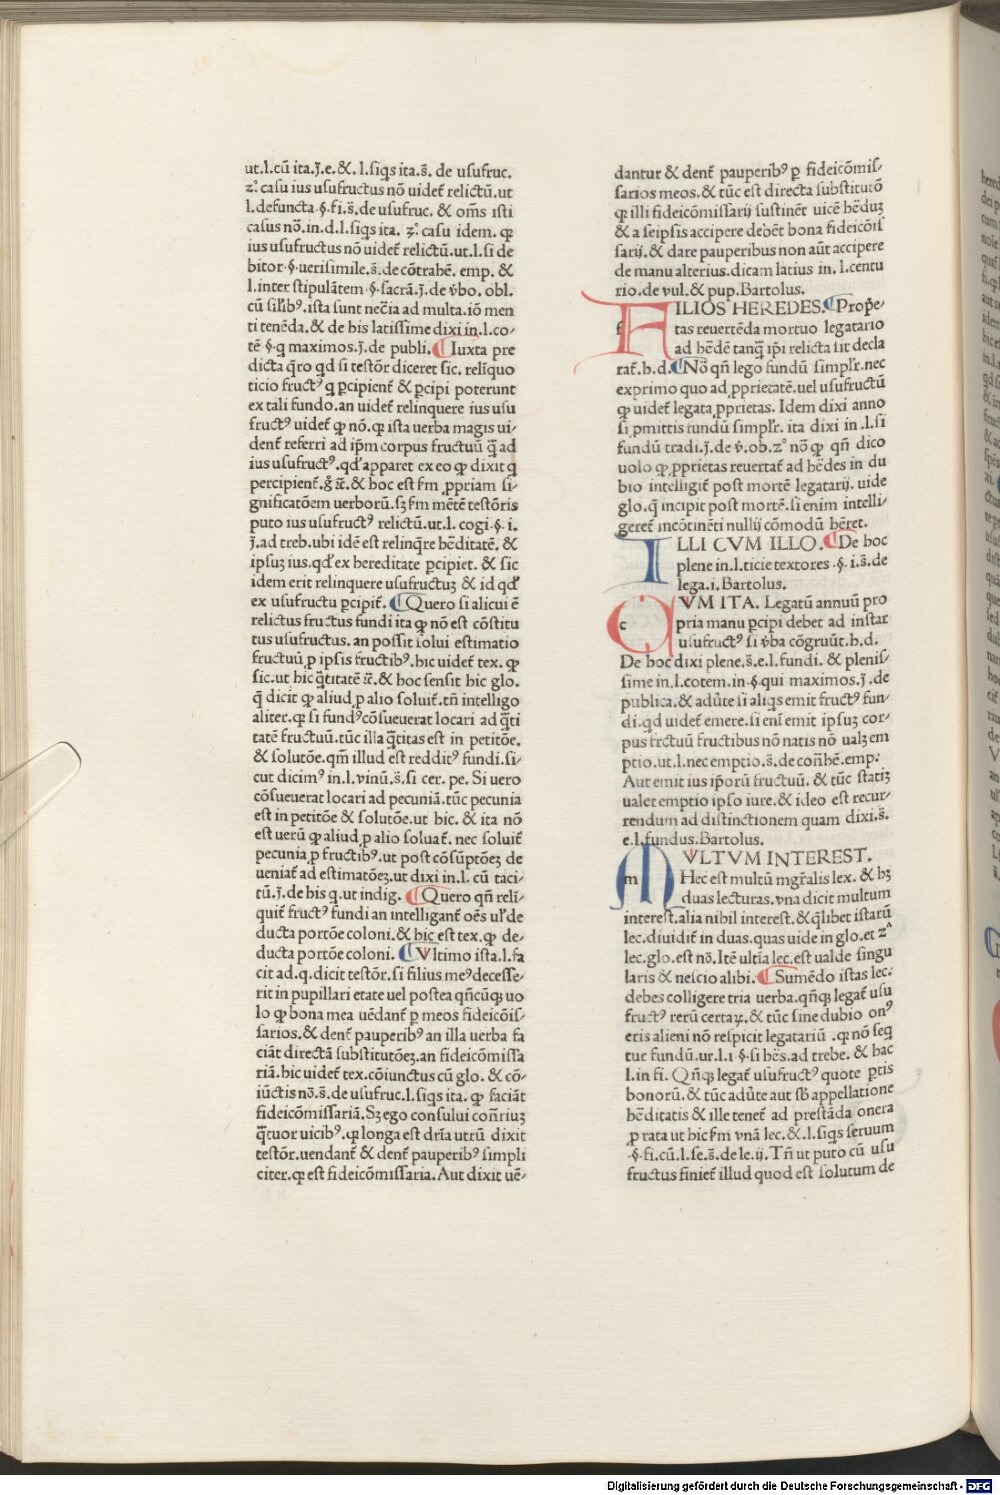 ut.l.cū ita.j̄.e.&.l.siq̄s ita.s̄. de usufruc.
z.º casu ius usufructus nō uidet̄ relictū.ut
l.defuncta.§.fi.s̄.de usufruc. & om̄s isti
casus nō.in.d.l.siq̄s ita. z.º casu idem. ꝙ
ius usufructus nō uidet̄ relictū.ut.l.si de
bitor.§.uerisimile.s̄.de cōtrahē. emp. &
l.inter stipulātem.§.sacrā.j̄.de v̄bo. obl.
cū sil'ibꝰ.ista sunt nec̄ia ad multa.iō men
ti tenēda.& de his latissime dixi in.l.co-
tē.§.q maximos.j̄.de publi. ¶ Iuxta pre
dicta q̄ro qd si testōr diceret sic. relīquo
ticio fructꝰ q ꝑcipient̄ & ꝑcipi poterunt
ex tali fundo.an uidet̄ relinquere ius usu
fructꝰ uidet̄ ꝙ nō.ꝙ ista uerba magis ui-
dent̄ referri ad ip̄m corpus fructuū q̄ ad
ius usufructꝰ.qd' apparet ex eo ꝙ dixit q
percipient̄.& hoc est f̄m ꝓpriam si-
gnificatōem uerborū.sꝫ f̄m mētē testōris
puto ius usufructꝰ relictū.ut.l. cogi.§.i.
j̄.ad treb.ubi idē est relinq̄re hēditatē. &
ipsuꝫ ius.qd' ex hereditate ꝑcipiet. & sic
idem erit relinquere usufructuꝫ & id qd'
ex usufructu ꝑcipit̄. ¶ Quero si alicui ē
relictus fructus fundi ita ꝙ nō est cōstitu
tus usufructus. an possit solui estimatio
fructuū ꝓ ipsis fructibꝰ.hic uidet̄ tex. ꝙ
sic.ut hic q̄titatē & hoc sensit hic glo.
q̄ dicit ꝙ aliud ꝓ alio soluit̄.tn̄ intelligo
aliter.ꝙ si fundꝰ cōsueuerat locari ad q̄ti
tatē fructuū.tūc illa q̄titas est in petitōe.
& solutōe.qm̄ illud est redditꝰ fundi.si-
cut dicimꝰ in.l.vinū.s̄.si cer. pe. Si uero
cōsueuerat locari ad pecuniā.tūc pecunia
est in petitōe & solutōe.ut hic. & ita nō
est uerū ꝙ aliud ꝓ alio soluat̄. nec soluit̄
pecunia ꝓ fructibꝰ.ut post cōsūptōeꝫ de
ueniat̄ ad estimatōeꝫ.ut dixi in.l. cū taci-
tū.j̄.de his q.ut indig. ¶ Quero qn̄ reli-
quit̄ fructꝰ fundi an intelligant̄ oēs ul' de
ducta portōe coloni.& hic est tex.ꝙ de-
ducta portōe coloni. ¶ Vltimo ista.l.fa
cit ad.q.dicit testōr.si filius meꝰ decesse-
rit in pupillari etate uel postea qn̄cūqꝫ uo
lo ꝙ bona mea uēdant̄ ꝑ meos fideicōis-
sarios.& dent̄ pauperibꝰ an illa uerba fa
ciāt directā substitutōeꝫ.an fideicōmissa
riā.hic uidet̄ tex.cōiunctus cū glo. & cō-
iūctis nō.s̄.de usufruc.l.siq̄s ita. ꝙ faciāt
fideicōmissariā. Sꝫ ego consului con̄riuꝫ
q̄tuor uicibꝰ.ꝙ longa est dr̄ia utrū dixit
testōr.uendant̄ & dent̄ pauperibꝰ simpli
citer.ꝙ est fideicōmissaria. Aut dixit uē-
dantur & dent̄ pauperibꝰ ꝑ fideicōmis-
sarios meos.& tūc est directa substitutō
ꝙ illi fideicōmissarij sustinēt uicē hēduꝫ
& a seipsis accipere debēt bona fideicōis
sarij.& dare pauperibus non aūt accipere
de manu alterius.dicam latius in. l.centu
rio.de vul.& pup.Bartolus.
FILIOS HEREDES. ¶ Prop̄e-
tas reuertēda mortuo legatario
ad hēdē tanq̄ ip̄i relicta sit decla
rat̄.h.d. ¶ Nō qn̄ lego fundū simplr̄.nec
exprimo quo ad ꝓprietatē.uel usufructū
ꝙ uidet̄ legata ꝓprietas. Idem dixi anno
si ꝓmittis fundū simplr̄. ita dixi in .l.si
fundū tradi.j̄.de v̄.ob.zº nō ꝙ qn̄ dico
uolo ꝙ ꝓprietas reuertat̄ ad hēdes in du
bio intelligit̄ post mortē legatarij. uide
glo.q̄ incipit post mortē.si enim intelli-
geret̄ incōtinēti nullū cōmodū hēret.
ILLI CVM ILLO. ¶ De hoc
plene in.l.ticie textores.§.i.s̄.de
lega.i.Bartolus.
CVM ITA. Legatū annuū pro
pria manu ꝑcipi debet ad instar
usufructꝰ si v̄ba cōgruūt.h.d.
De hoc dixi plene.s̄.e.l.fundi. & plenis-
sime in.l.cotem.in.§.qui maximos.j̄.de
publica.& adūte si aliq̄s emit fructꝰ fun-
di.qd uidet̄ emere.si enī emit ipsuꝫ cor-
pus frctuū fructibus nō natis nō ualꝫ em
ptio.ut.l.nec emptio.s̄.de con̄hē.emp.
Aut emit ius ip̄orū fructuū. & tūc statiꝫ
ualet emptio ipso iure.& ideo est recur-
rendum ad distinctionem quam dixi.s̄.
e.l.fundus.Bartolus.
MVLTVM INTEREST.
Hec est multū mgr̄alis lex. & hꝫ
duas lecturas.vna dicit multum
interest.alia nihil interest.& q̄libet istarū
lec.diuidit̄ in duas.quas uide in glo.et zª
lec.glo.est nō.Itē ultīa lec.est ualde singu
laris & nescio alibi. ¶ Sumēdo istas lec.
debes colligere tria uerba.qn̄qꝫ legat̄ usu
fructꝰ rerū certaꝝ.& tūc sine dubio onꝰ
eris alieni nō respicit legatariū .ꝙ nō seq̄
tur fundū.ur.l.1.§.si hēs.ad trebe. & hac
l.in fi. Qn̄qꝫ legat̄ usufructꝰ quote ꝑtis
bonorū.& tūc adūte aut sb̄ appellatione
hēditatis & ille tenet̄ ad prestāda onera
ꝓ rata ut hic f̄m vnā lec.&.l.siq̄s seruum
.§.fi.cū.l.se.s̄.de le.ij. Tn̄ ut puto cū usu
fructus finiet̄ illud quod est solutum de
Digitalisierung gefördert durch die Deutsche Forschungsgemeinschaft - DFG